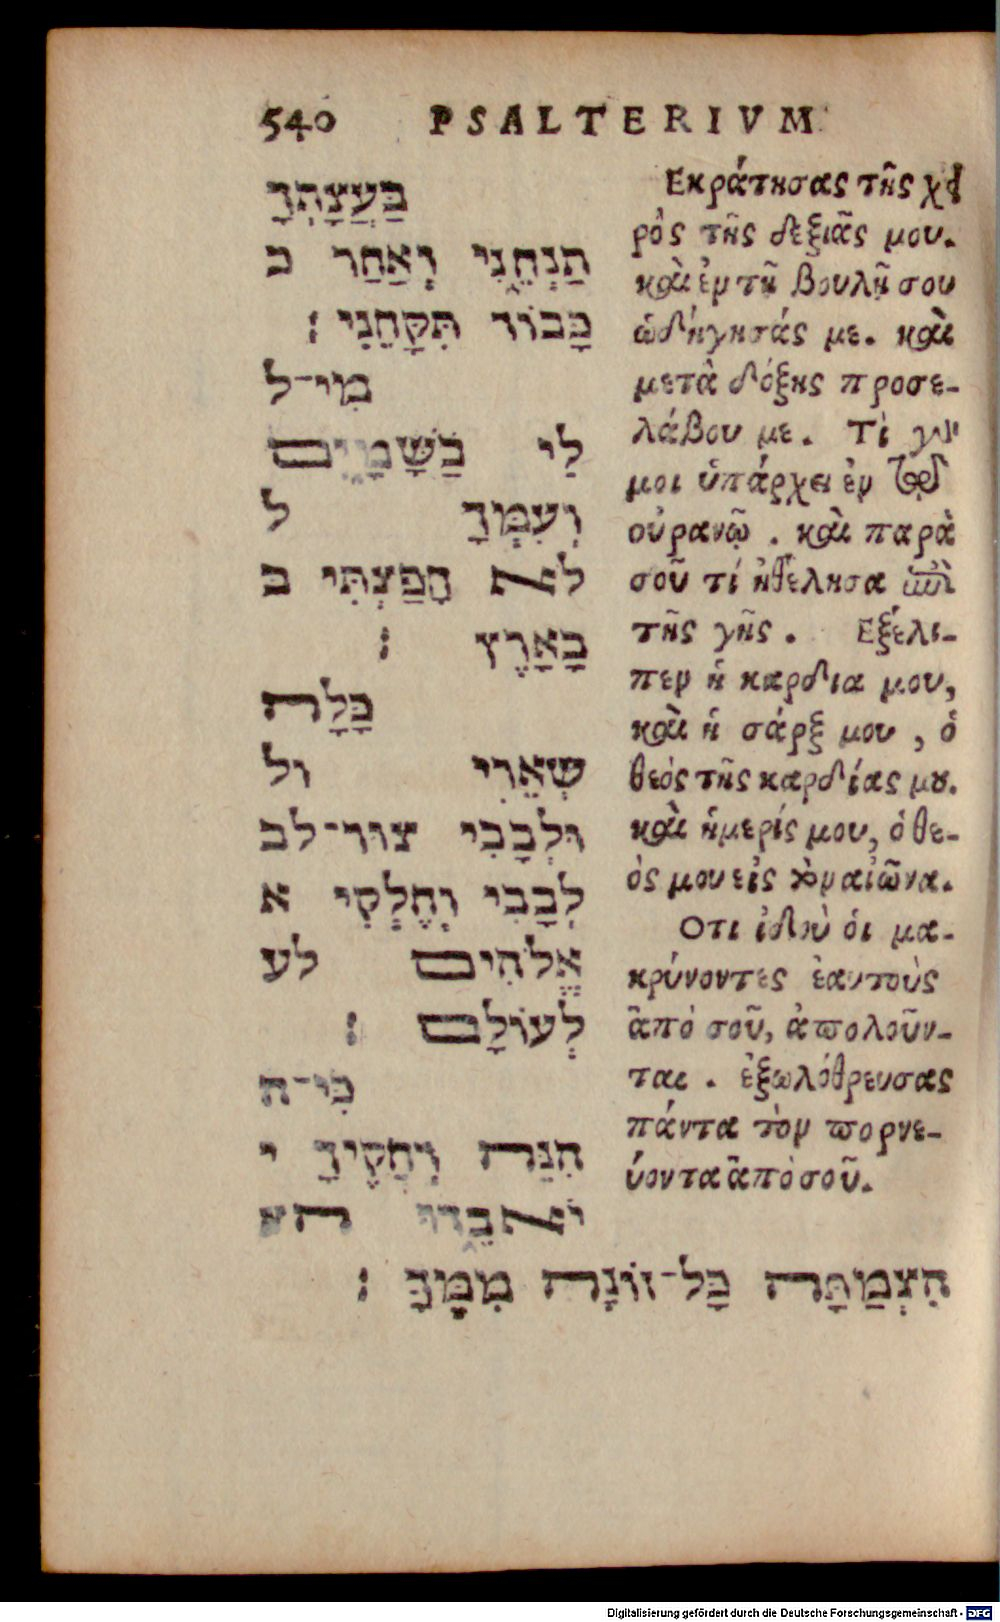 540 PSALTERIVM
בַּעֲצָתְךָ
תַנְחֵנִי וְאַחַר כ
כָּבוֹד תִּקָּחֵנִי :
מִי־ל
לִי בַשָּׁמָיִם
וְעִמְּךָ ל
לא חָפַצְתִּי ב
בָאָרֶץ :
כָּלָה
שְׁאֵרִי ול
וּלְבָבִי צוּר־לב
לְבָבִי וְחֶלְקִי א
אֱלֹהִים לע
לְעוֹלָם :
כִּי־ה
הִנֵּה רְחֵקֶיךָ י
יֹאבֵדוּ הצ
הִצְמַתָּה כָּל־זוֹנֶה מִמֶּךָּ :
Εκράτησας τῆς χει
ρός τῆς δεξιᾶς μου.
καὶ ἐν τῇ βουλῇ σου
ὡδήγησάς με. καὶ
μετὰ δόξης προσε-
λάβου με. Τὶ γὰρ
μοι ὑπάρχει ἐν τῷ
οὐρανῷ. καὶ παρὰ
σοῦ τί ἠθέλησα ἐπὶ
τῆς γῆς. Εξέλι-
πεν ἡ καρδια μου,
καὶ ἡ σάρξ μου, ὁ
θεός τῆς καρδίας μου.
καὶ ἡμερίς μου, ὁ θε-
ός μου εἰς τὸν αἰῶνα.
Οτι ἰδοὺ ὁι μα-
κρύνοντες ἑαυτοὺς
ἀπό σοῦ, ἀπολοῦν-
ται. ἐξωλόθρευσας
πάντα τὸν πορνε-
ύοντα ἀπὸ σοῦ.
Digitalisierung gefördert durch die Deutsche Forschungsgemeinschaft - DFG